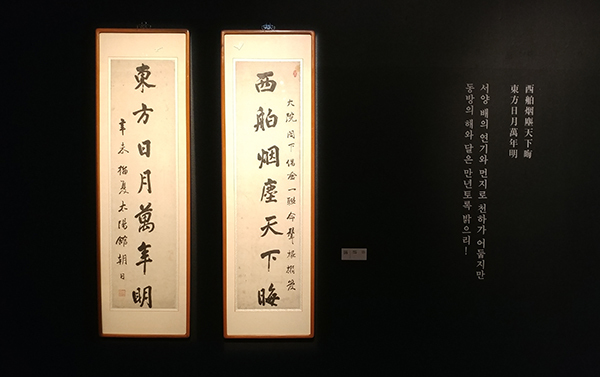 西舶烟塵天下晦
東方日月萬年明
서양 배의 연기와 먼지로 천하가 어둡지만
동방의 해와 달은 만년토록 밝으리!
大院閤下 一聯命
西舶烟塵天下晦
東方日月萬年明
辛未榴夏太陽館朝日